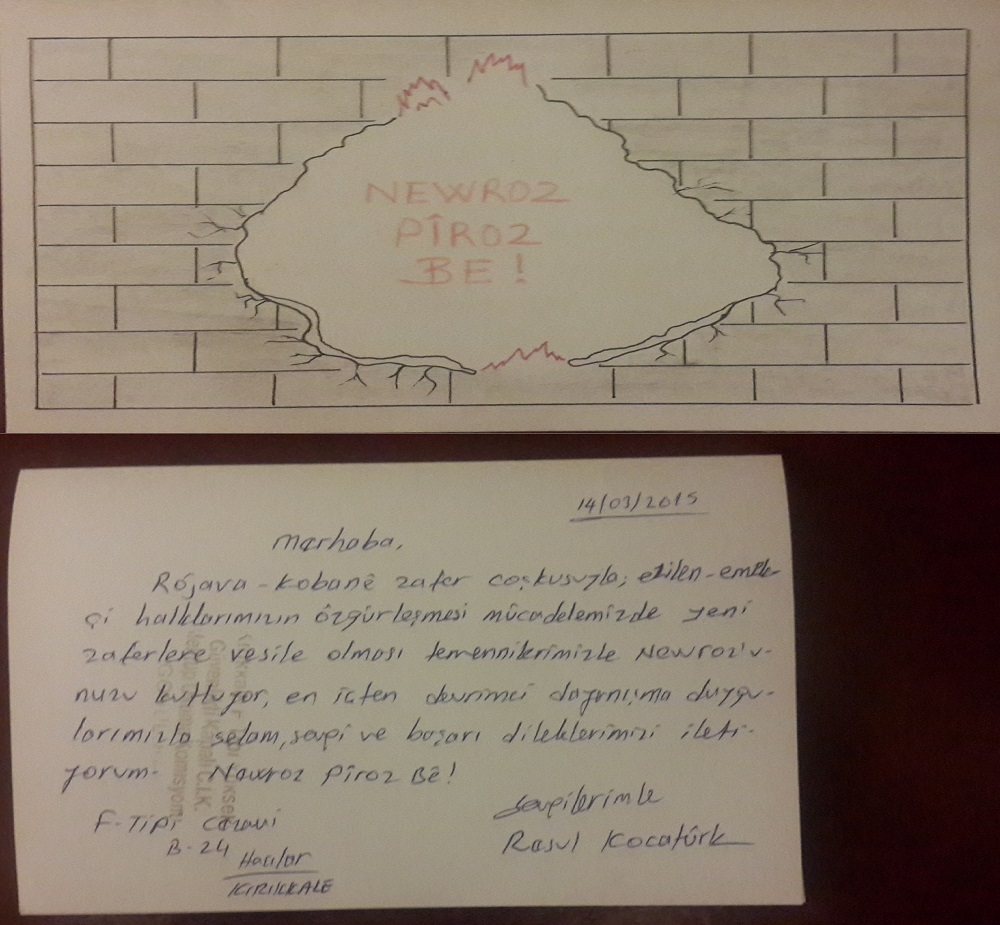 NEWROZ
PÎROZ
BE!
14/03/2015
Merhaba,
Rojava-Kobanê zafer coşkusuyla; ezilen-emek-
çi halklarımızın özgürleşmesi mücadelemizde yeni
zaferlere vesile olması temennilerimizle Newroz'u-
nuzu kutluyor, en içten devrimci dayanışma duygu-
larımızla selam, sevgi ve başarı dileklerimizi ileti-
yorum. Newroz Pîroz Bê!
Sevgilerimle
Resul Kocatürk
F-Tipi Cezaevi
B-24
Hacılar
KIRIKKALE